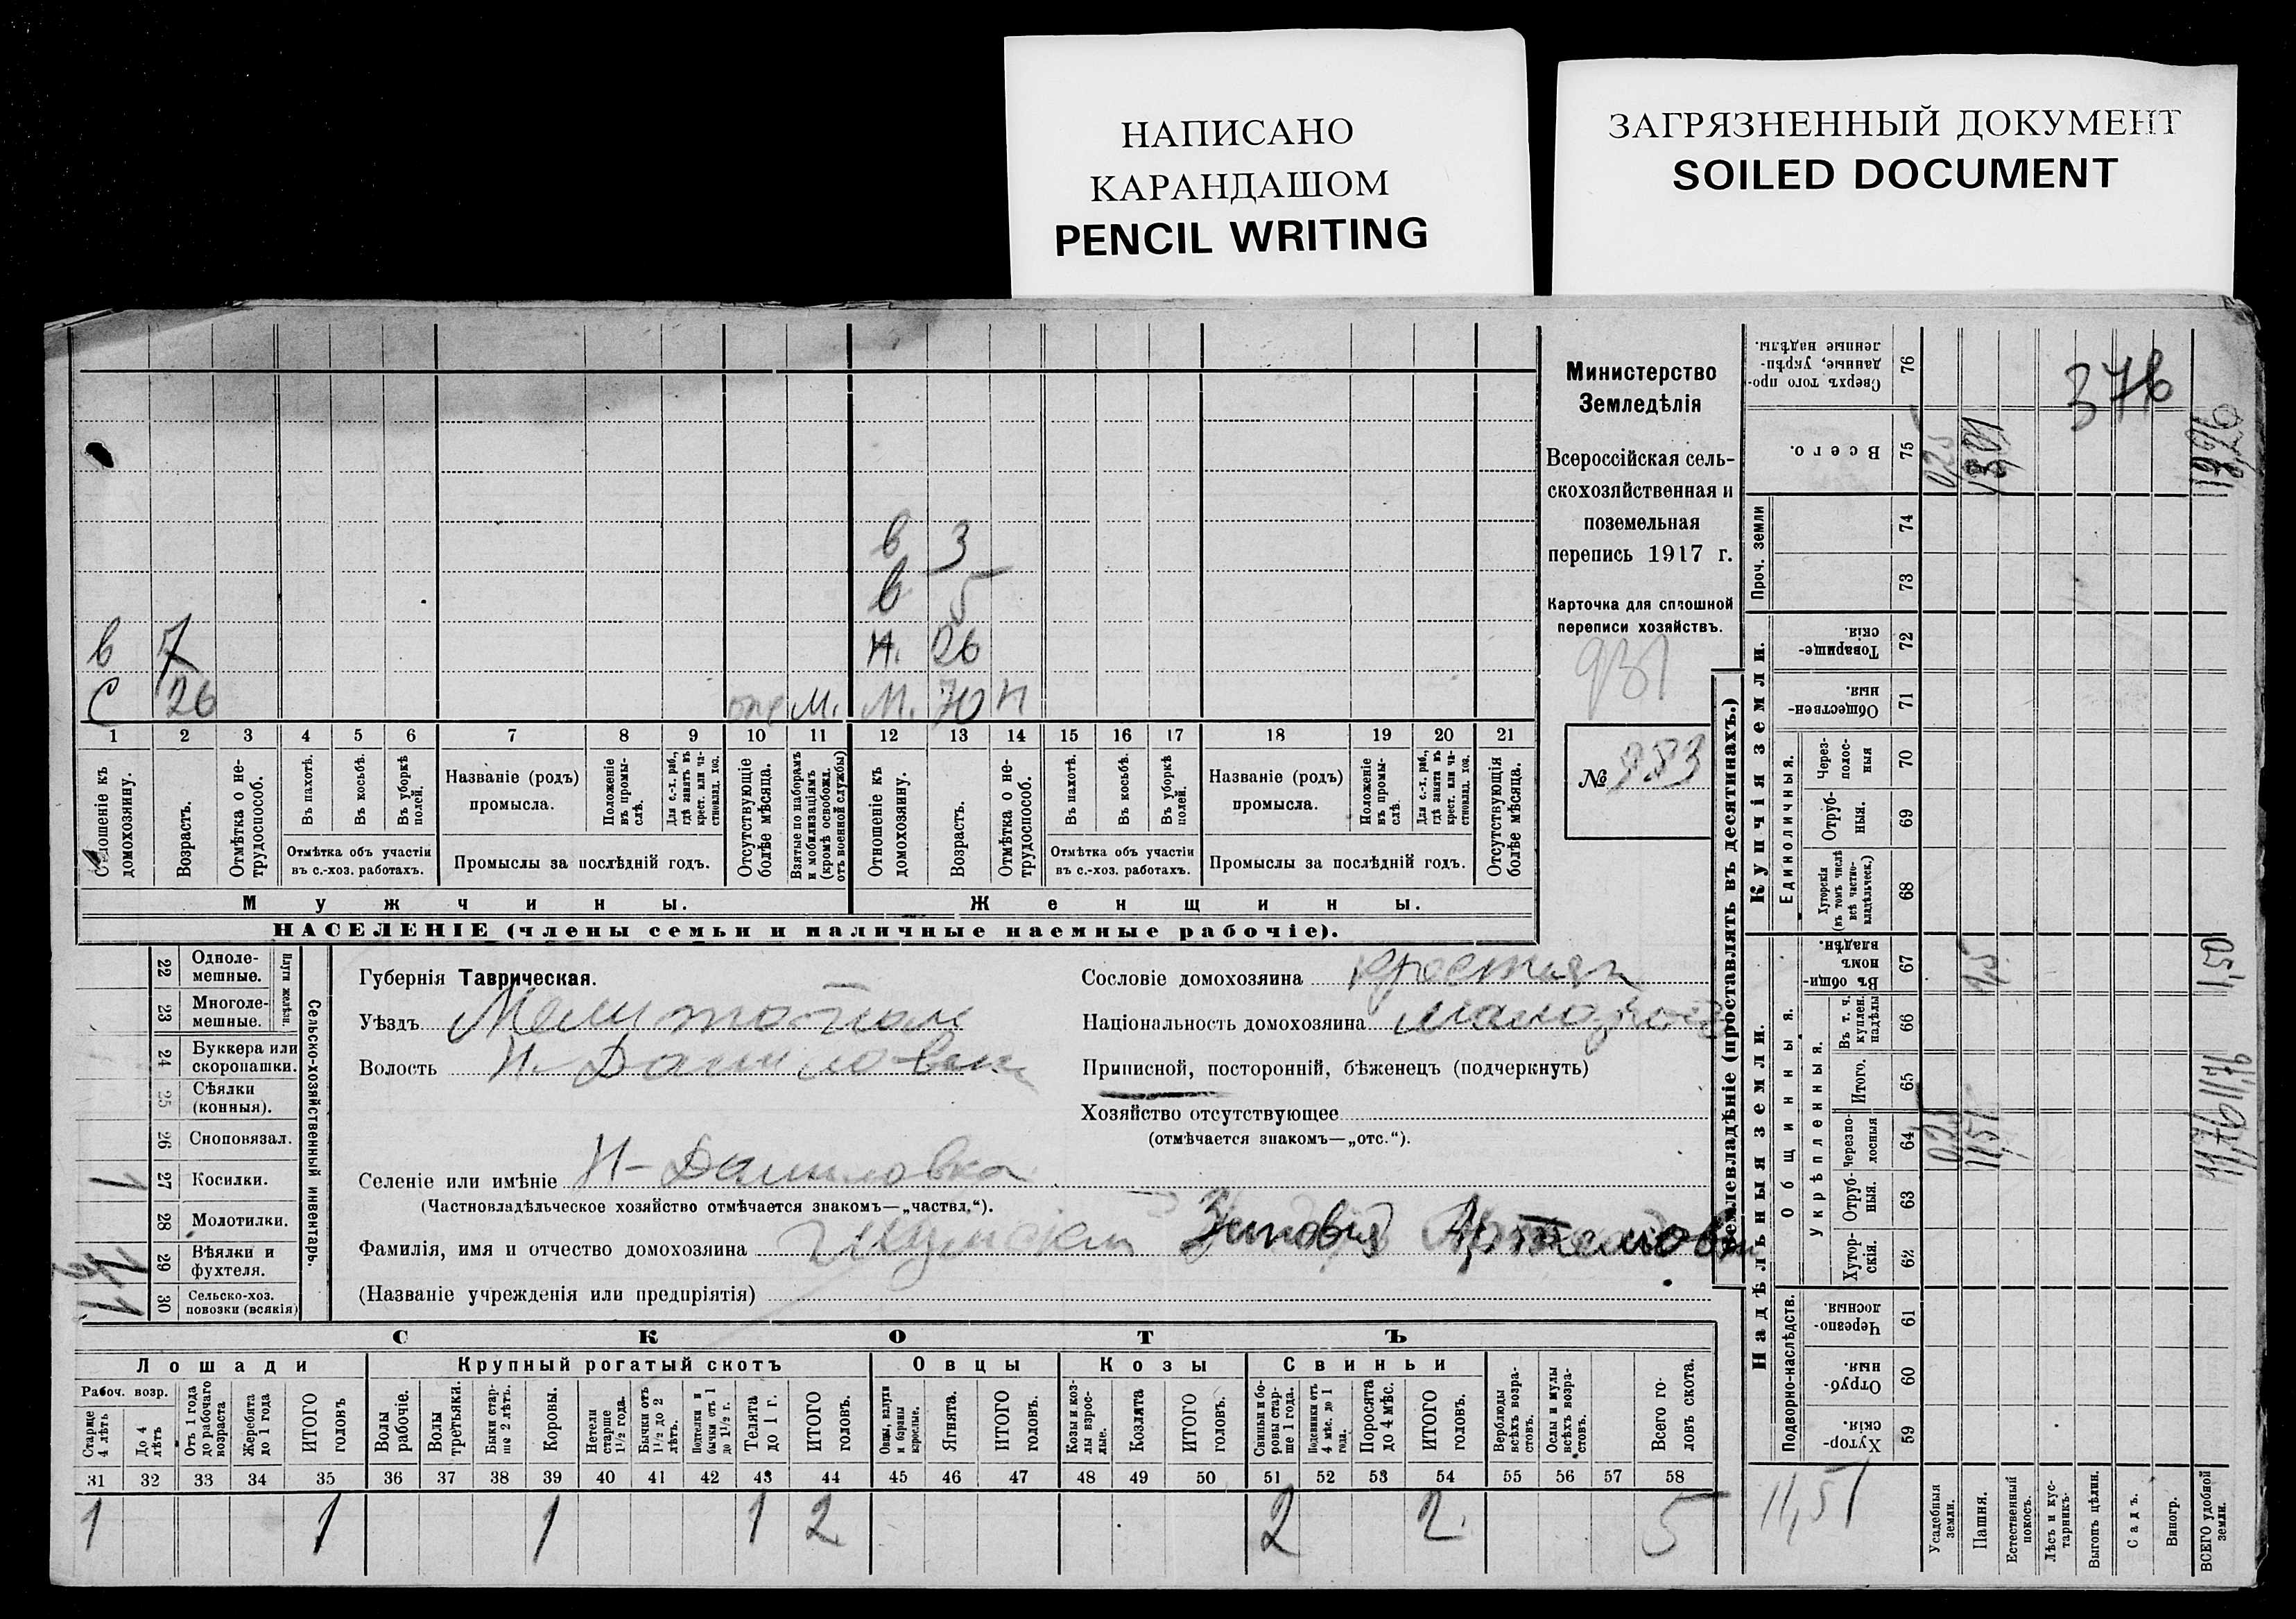 НАПИСАНО
КАРАНДАШОМ
PENCIL WRITING
ЗАГРЯЗНЕННЫЙ ДОКУМЕНТ
SOILED DOCUMENT
в 3
в 5
в 7 Н. 26
С 26 М. М. 70 Н
1 2 3 4 5 6 7 8 9 10 11 12 13 14 15 16 17 18 19 20 21
Отношеніе къ домохозяину.
Возрастъ.
Отмѣтка о не-трудоспособ.
Въ пахотѣ.
Въ косьбѣ.
Въ уборкѣ полей.
Отмѣтка объ участіи въ с.-хоз. работахъ.
Названіе (родъ) промысла.
Положеніе въ промы-слѣ.
Для с.-х. раб., гдѣ занятъ въ крест. или ча-стновлад. хоз.
Промыслы за послѣдній годъ.
Отсутствующіе болѣе мѣсяца.
Взятые по наборамъ и мобилизаціямъ (кромѣ освобожд. отъ военной службы)
Отношеніе къ домохозяину.
Возрастъ.
Отмѣтка о не-трудоспособ.
Въ пахотѣ.
Въ косьбѣ.
Въ уборкѣ полей.
Отмѣтка объ участіи въ с.-хоз. работахъ.
Названіе (родъ) промысла.
Положеніе въ промы-слѣ.
Для с.-х. раб., гдѣ занята въ крест. или ча-стновлад. хоз.
Промыслы за послѣдній годъ.
Отсутствующія болѣе мѣсяца.
Мужчины.
Женщины.
НАСЕЛЕНІЕ (члены семьи и наличные наемные рабочіе).
Министерство
Земледѣлія
Всероссійская сель-
скохозяйственная и
поземельная
перепись 1917 г.
Карточка для сплошной
переписи хозяйствъ.
931
№ 983
Сельско-хозяйственный инвентарь.
Плуги желѣзн.
22 Одноле-мешные.
23 Многоле-мешные.
24 Буккера или скоропашки.
25 Сѣялки (конныя).
26 Сноповязал.
27 Косилки. 1
28 Молотилки.
29 Вѣялки и фухтеля.
30 Сельско-хоз. повозки (всякія)
Губернія Таврическая.
Уѣздъ Мелитопол
Волость Н-Даниловск
Селеніе или имѣніе Н-Даниловка
(Частновладѣльческое хозяйство отмѣчается знакомъ—„частвл.“).
Фамилія, имя и отчество домохозяина Зиновій Артемов
(Названіе учрежденія или предпріятія)
Сословіе домохозяина крестьян
Національность домохозяина малоросс
Приписной, посторонній, бѣженецъ (подчеркнуть)
Хозяйство отсутствующее
(отмѣчается знакомъ—„отс.“).
СКОТЪ
Лошади
Крупный рогатый скотъ
Овцы
Козы
Свиньи
Рабоч. возр.
Старше 4 лѣтъ
До 4 лѣтъ
Отъ 1 года до рабочаго возраста
Жеребята до 1 года
ИТОГО головъ
Волы рабочіе.
Волы третьяки.
Быки стар-ше 2 лѣтъ.
Коровы.
Нетели старше 1½ года.
Бычки отъ 1½ до 2 лѣтъ.
Подтелки и бычки отъ 1 до 1½ г.
Телята до 1 г.
ИТОГО головъ.
Овцы, валухи и бараны взрослые.
Ягнята.
ИТОГО головъ.
Козы и коз-лы взрос-лые.
Козлята
ИТОГО головъ.
Свиньи и бо-ровы стар-ше 1 года.
Подсвинки отъ 4 мѣс. до 1 года.
Поросята до 4 мѣс.
ИТОГО головъ.
Верблюды всѣхъ возра-стовъ.
Ослы и мулы всѣхъ возра-стовъ.
Всего го-ловъ скота.
31 32 33 34 35 36 37 38 39 40 41 42 43 44 45 46 47 48 49 50 51 52 53 54 55 56 57 58
1 1 1 1 2 2 2. 5
Землевладѣніе (проставлять въ десятинахъ.)
Купчія земли.
Надѣльныя земли.
Проч. земли
Единоличныя.
Общинныя.
Укрѣпленныя.
Подворно-наслѣдств.
Сверхъ того про-данные, укрѣп-ленные надѣлы. 76
Всего. 75
74
73
Товарище-скія. 72
Обществен-ныя. 71
Через-полос-ныя 70
Отруб-ныя. 69
Хуторскія (въ томъ числѣ всѣ частно-владѣльческ.) 68
Въ общин-номъ владѣн. 67
Въ т. ч. куплен. надѣлы 66
Итого. 65
Черезпо-лосныя 64
Отруб-ныя. 63
Хутор-скія. 62
Черезпо-лосныя. 61
Отруб-ныя. 60
Хутор-скія. 59
376
0,25
1,5
1,50
0,25
11,51
11,76
11,76
11,51
Усадебныя земли.
Пашня.
Естественный покосъ.
Лѣсъ и кус-тарникъ.
Выгонъ цѣлин.
Садъ.
Виногр.
ВСЕГО удобной земли.